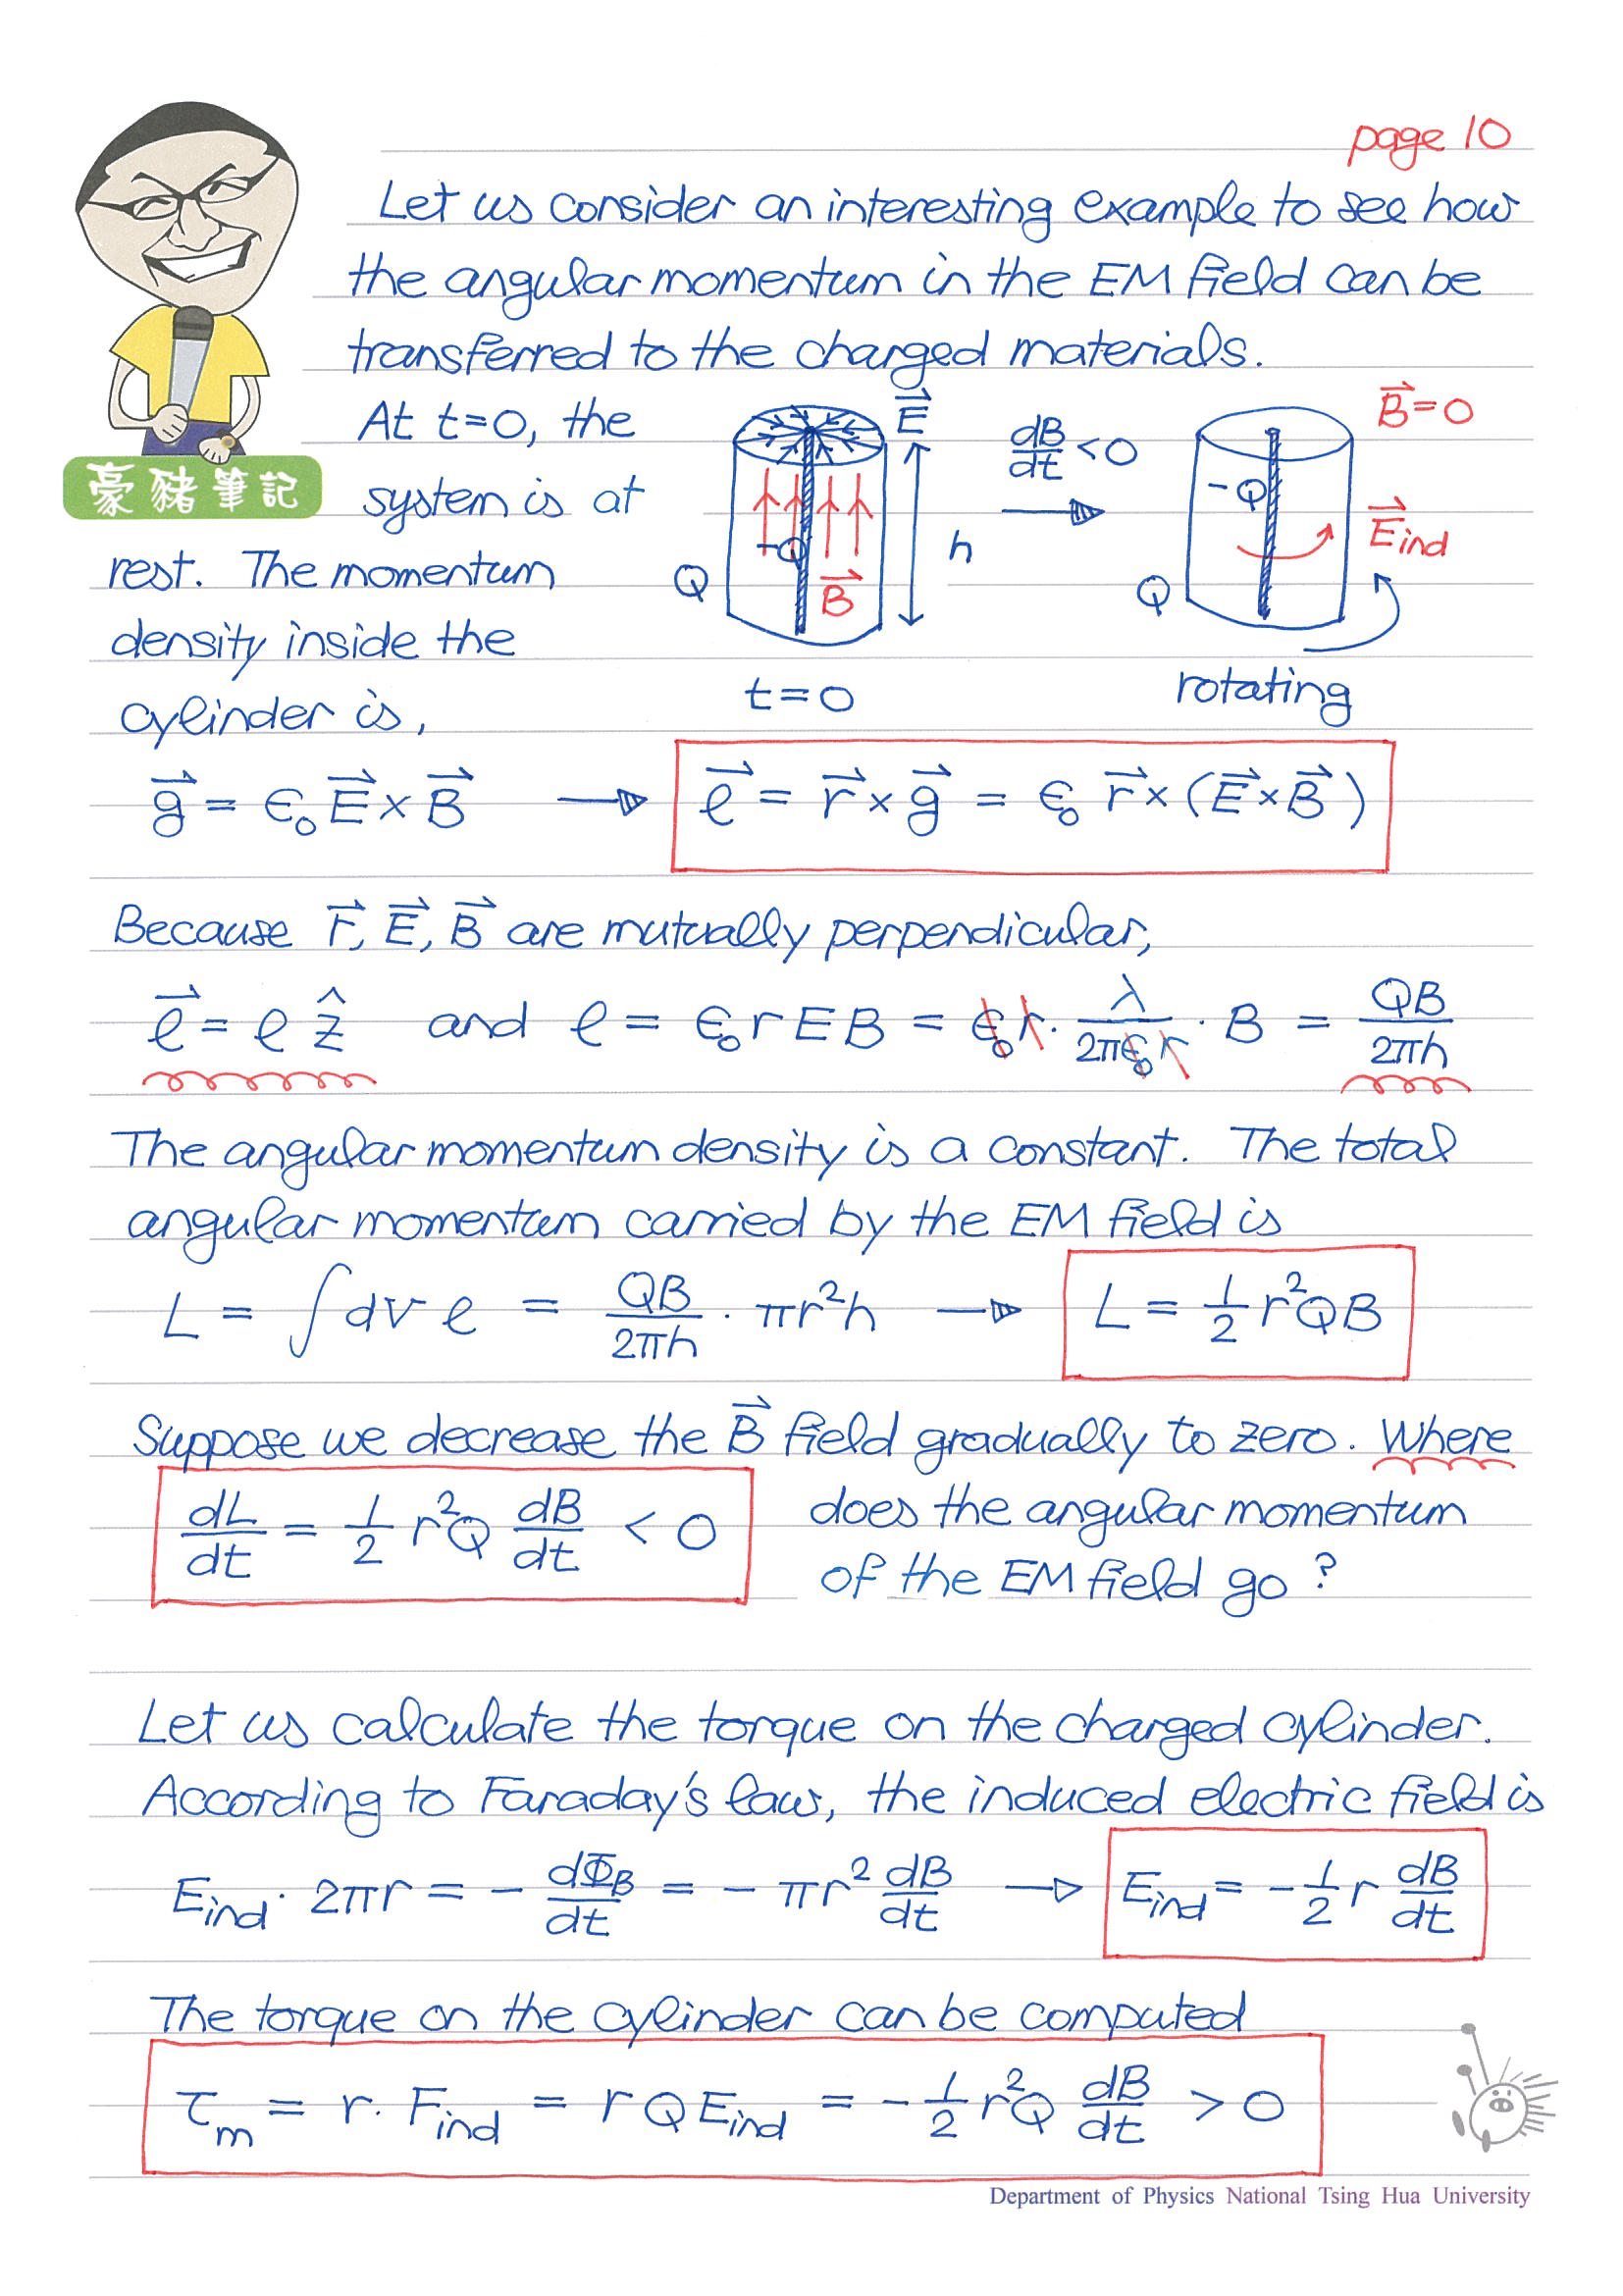 page 10
Let us consider an interesting example to see how
the angular momentum in the EM field can be
transferred to the charged materials.
豪豬筆記
At t=0, the
system is at
rest. The momentum
density inside the
cylinder is,
E⃗
h
-Q
Q
B⃗
t=0
dB/dt < 0
B⃗=0
-Q
E⃗ind
Q
rotating
g⃗ = ϵ₀ E⃗×B⃗ → ℓ⃗ = r⃗×g⃗ = ϵ₀ r⃗×(E⃗×B⃗)
Because r⃗, E⃗, B⃗ are mutually perpendicular,
ℓ⃗ = ℓ ẑ and ℓ = ϵ₀rEB = ϵ₀r · λ/2πϵ₀r · B = QB/2πh
The angular momentum density is a constant. The total
angular momentum carried by the EM field is
L = ∫dV ℓ = QB/2πh · πr²h → L = 1/2 r²QB
Suppose we decrease the B⃗ field gradually to zero. Where
dL/dt = 1/2 r²Q dB/dt < 0 does the angular momentum
of the EM field go ?
Let us calculate the torque on the charged cylinder.
According to Faraday's law, the induced electric field is
Eind · 2πr = - dΦB/dt = - πr² dB/dt → Eind = -1/2 r dB/dt
The torque on the cylinder can be computed
τm = r · Find = r Q Eind = -1/2 r²Q dB/dt > 0
Department of Physics National Tsing Hua University